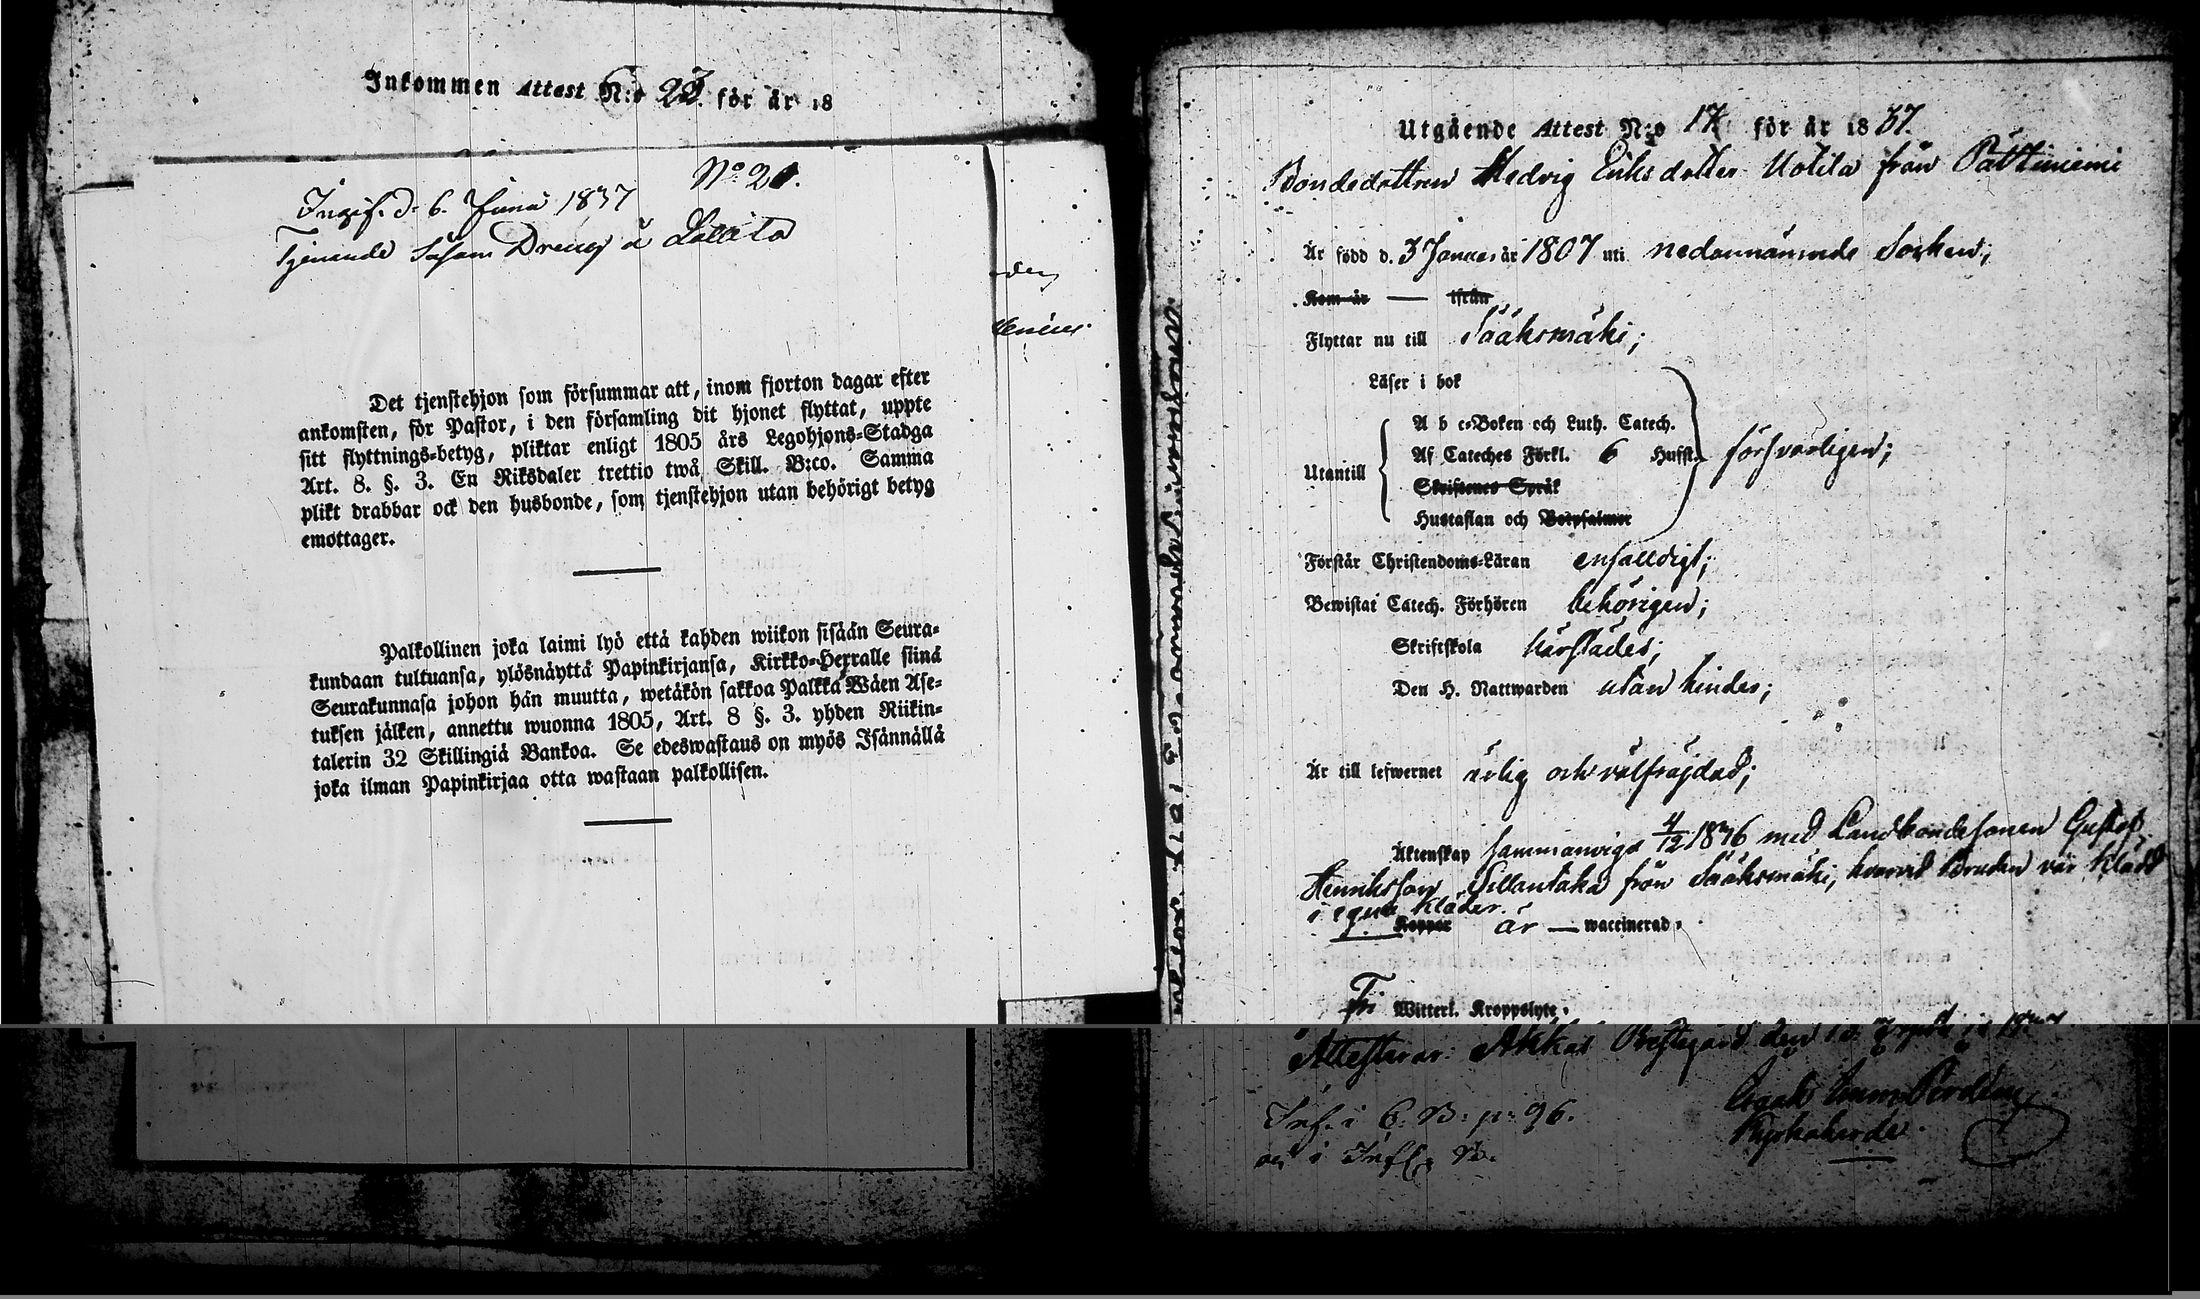 Inkommen Attest N:o 23. för år 18
No 20.
Ingif. d. 6. Junii 1837
Tjenande såsom Dreng å Lallila
Det tjenstehjon som försummar att, inom fjorton dagar efter
ankomsten, för Pastor, i den församling dit hjonet flyttat, uppte
sitt flyttnings-betyg, pliktar enligt 1805 års Legohjons-Stadga
Art. 8. §. 3. En Riksdaler trettio twå Skill. B:co. Samma
plikt drabbar ock den husbonde, som tjenstehjon utan behörigt betyg
emottager.
Palkollinen joka laimi lyö että kahden wiikon sisään Seura-
kundaan tultuansa, ylösnäyttä Papinkirjansa, Kirkko-Herralle siinä
Seurakunnasa johon hän muutta, wetäkön sakkoa Palkka Wäen Ase-
tuksen jälken, annettu wuonna 1805, Art. 8 §. 3. yhden Riikin-
talerin 32 Skillingiä Bankoa. Se edeswastaus on myös Isännällä
joka ilman Papinkirjaa otta wastaan palkollisen.
Utgående Attest N:o 17 för år 1837.
Bondedottren Hedvig Eriksdotter Uotila från Pättiniemi
Är född d. 3 Januari år 1807 uti nedannämnde Socken;
Kom år — ifrån
Flyttar nu till Sääksmäki;
Läser i bok
A b c-Boken och Luth. Catech.
Utantill Af Cateches Förkl. 6 Hufst. försvarligen;
Skriftenes Språk
Hustaflan och Botpsalmer
Förstår Christendoms-Läran enfalldigt;
Bewistat Catech. Förhören behörigen;
Skriftskola härstädes;
Den H. Nattwarden utan hinder;
Är till lefwernet ärlig och välfräjdad;
Äktenskap sammanvigd 4/12 1836 med Landbondesonen Gustaf
Henriksson Sillantaka från Sääksmäki, hvarvid Bruden var klädd
i egna kläder.
Koppor är — waccinerad.
Fri Witterl. Kroppslyte.
Attesterar: Akkas Prestegård den
Inf. i C. B. p. 96.
och i Infl. B.
Kyrkoherde.